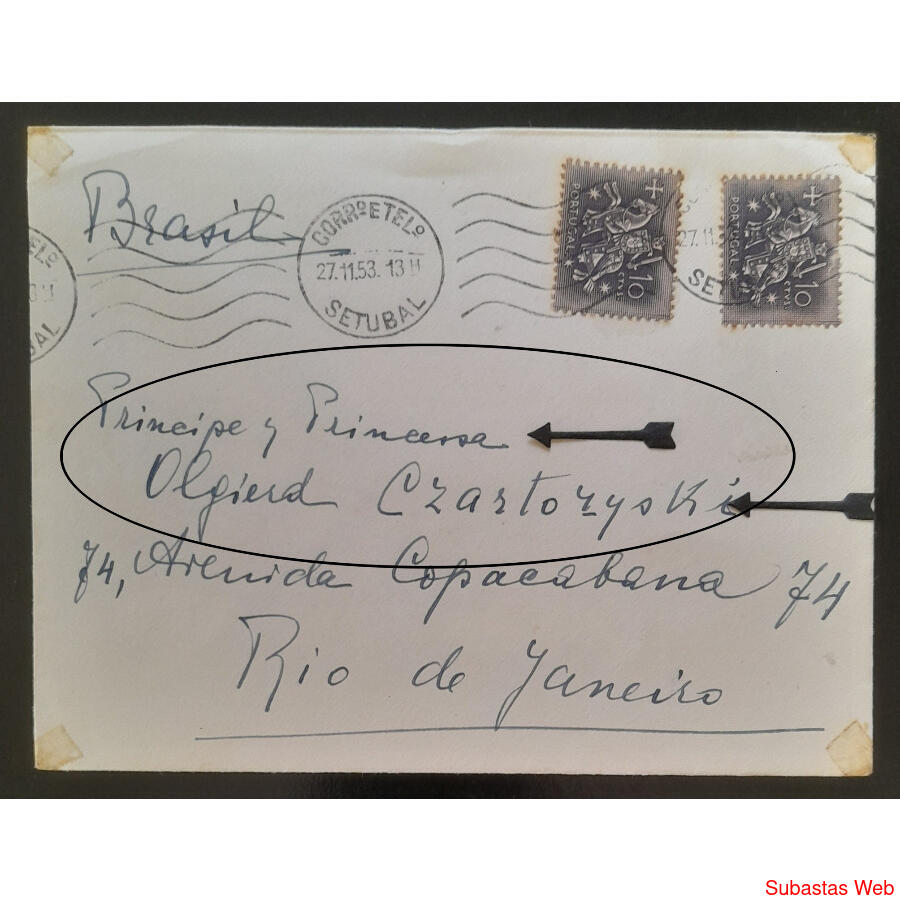 Brasil
CORR⁰ˢ E TEL⁰
27.11.53. 13 H
SETUBAL
PORTUGAL
10
CTVS
PORTUGAL
10
CTVS
27.11.
SET
EL⁰
3 H
BAL
Principe y Princessa
Olgierd Czartoryski
74, Avenida Copacabana 74
Rio de Janeiro
Subastas Web